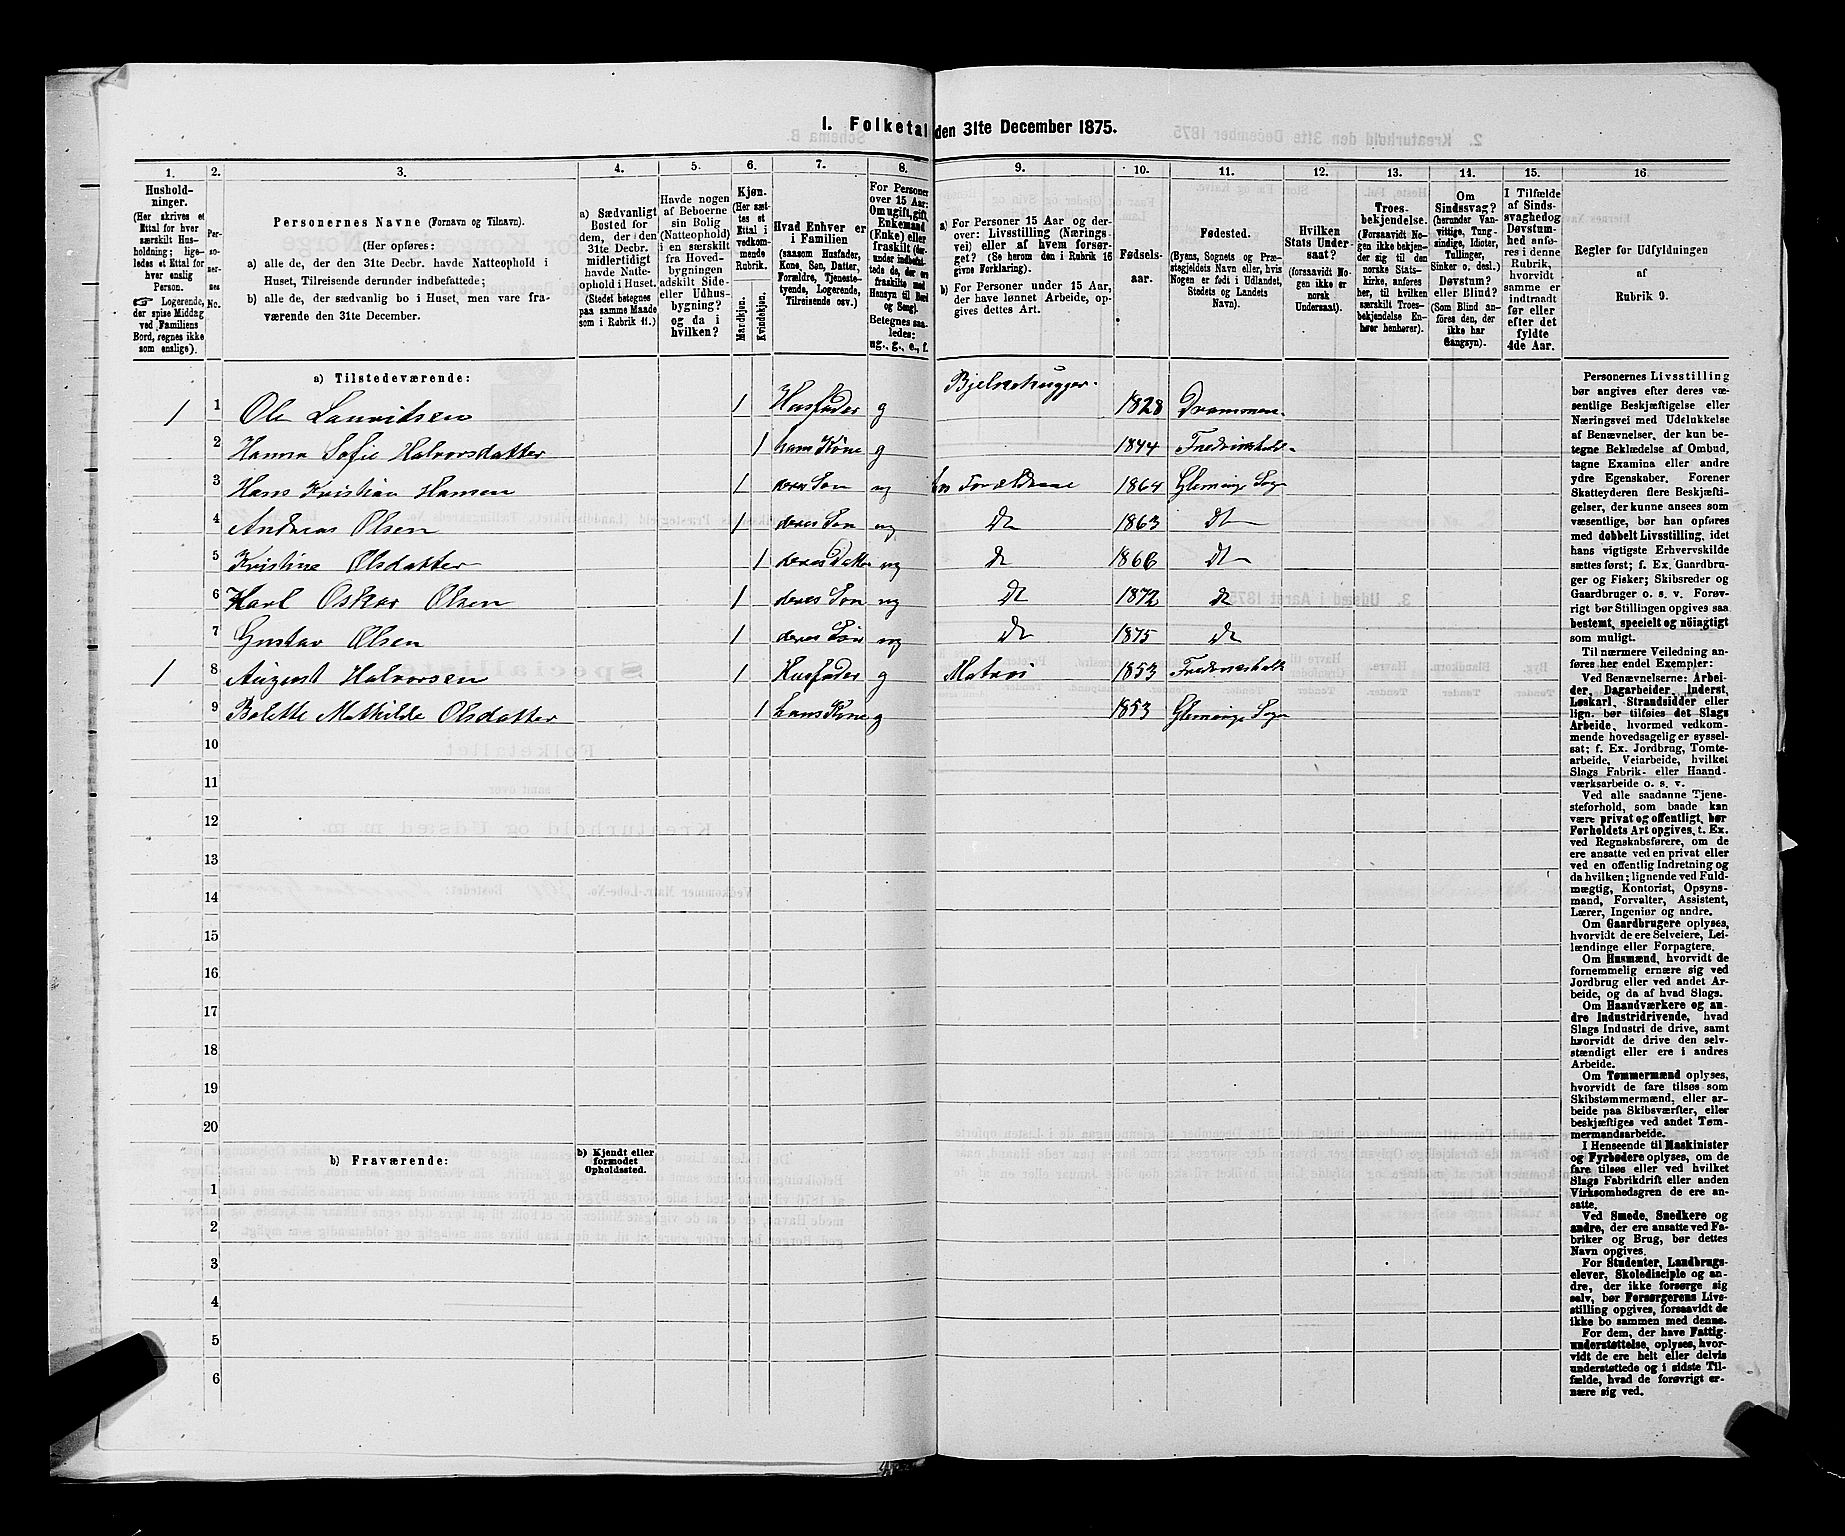 I. Folketal den 31te December 1875.
1. 2. 3. 4. 5. 6. 7. 8. 9. 10. 11. 12. 13. 14. 15. 16.
Hushold-
ninger.
(Her skrives et
Ettal for hver
særskilt Hus-
holdning; lige-
ledes et Ettal for
hver enslig
Person.
☞ Logerende,
der spise Middag
ved Familiens
Bord, regnes ikke
som enslige).
Per-
so-
ner-
nes
No.
Personernes Navne (Fornavn og Tilnavn).
(Her opføres:
a) alle de, der den 31te Decbr. havde Natteophold i
Huset, Tilreisende derunder indbefattede;
b) alle de, der sædvanlig bo i Huset, men vare fra-
værende den 31te December.
a) Sædvanligt
Bosted for
dem, der i den
31te Decbr.
midlertidigt
havde Natte-
ophold i Huset.
(Stedet betegnes
paa samme Maade
som i Rubrik 11.)
Havde nogen
af Beboerne
sin Bolig
(Natteophold)
i en særskilt
fra Hoved-
bygningen
adskilt Side-
eller Udhus-
bygning?
og da i
hvilken?
Kjøn.
(Her sæt-
tes et
Ettal i
vedkom-
mende
Rubrik.
Mandkjøn.
Kvindekjøn.
Hvad Enhver er
i Familien
(saasom Husfader,
Kone, Søn, Datter,
Forældre, Tjeneste-
tyende, Logerende,
Tilreisende osv.)
For Personer
over 15 Aar:
Om ugift, gift,
Enkemand
(Enke) eller
fraskilt (der-
under indbefat-
tede de, der ere
fraskilte med
Hensyn til Bord
og Seng).
Betegnes saa-
ledes:
ug., g., e., f.
a) For Personer 15 Aar og der-
over: Livsstilling (Nærings-
vei) eller af hvem forsør-
get? (Se herom den i Rubrik 16
givne Forklaring).
b) For Personer under 15 Aar,
der have lønnet Arbeide, op-
gives dettes Art.
Fødsels-
aar.
Fødested.
(Byens, Sognets og Præ-
stegjeldets Navn eller, hvis
Nogen er født i Udlandet,
Stedets og Landets
Navn).
Hvilken
Stats Under-
saat?
(forsaavidt No-
gen ikke er
norsk
Undersaat).
Troes-
bekjendelse.
(Forsaavidt No-
gen ikke bekjen-
der sig til den
norske Stats-
kirke, anføres
her, til hvilken
særskilt Troes-
bekjendelse En-
hver henhører).
Om
Sindssvag?
(herunder Van-
vittige, Tung-
sindige, Idioter,
Tullinger,
Sinker o. desl.)
Døvstum?
eller Blind?
(Som Blind an-
føres den, der
ikke har
Gangsyn).
I Tilfælde
af Sinds-
svaghed og
Døvstum-
hed anfø-
res i denne
Rubrik,
hvorvidt
samme er
indtraadt
før eller
efter det
fyldte
4de Aar.
Regler for Udfyldningen
af
Rubrik 9.
a) Tilstedeværende:
1 1 Ole Lauritsen 1 Husfader g Bjelkehugger. 1828 Drammen.
2 Hanna Sofie Halvorsdatter 1 hans Kone g 1844 Fredrikshald
3 Hans Kristian Hansen 1 deres Søn ug hos Forældrene 1864 Gleminge Sogn
4 Andreas Olsen 1 deres Søn ug Do 1863 Do
5 Kristine Olsdatter 1 deres Datter ug Do 1866 Do
6 Karl Oskar Olsen 1 deres Søn ug Do 1872 Do
7 Gustav Olsen 1 deres Søn ug Do 1875 Do
1 8 August Halvorsen 1 Husfader g Matros 1853 Fredrikshald
9 Bolette Mathilde Olsdatter 1 hans Kone g 1853 Gleminge Sogn
10
11
12
13
14
15
16
17
18
19
20
b) Fraværende:
b) Kjendt eller
formodet
Opholdssted.
1
2
3
4
5
6
Personernes Livsstilling
bør angives efter deres væ-
sentlige Beskjæftigelse eller
Næringsvei med Udelukkelse
af Benævnelser, der kun be-
tegne Beklædelse af Ombud,
tagne Examina eller andre
ydre Egenskaber. Forener
Skatteyderen flere Beskjæfti-
gelser, der kunne ansees som
væsentlige, bør han opføres
med dobbelt Livsstilling, idet
hans vigtigste Erhvervskilde
sættes først; f. Ex. Gaardbru-
ger og Fisker; Skibsreder og
Gaardbruger o. s. v. Forøv-
rigt bør Stillingen opgives saa
bestemt, specielt og nöiagtigt
som muligt.
Til nærmere Veiledning an-
føres her endel Exempler:
Ved Benævnelserne: Arbei-
der, Dagarbeider, Inderst,
Løskarl, Strandsidder eller
lign. bør tilføies det Slags
Arbeide, hvormed vedkom-
mende hovedsagelig er syssel-
sat; f. Ex. Jordbrug, Tomte-
arbeide, Veiarbeide, hvilket
Slags Fabrik- eller Haand-
værksarbeide o. s. v.
Ved alle saadanne Tjene-
steforhold, som baade kan
være privat og offentligt, bør
Forholdets Art opgives, t. Ex.
ved Regnskabsførere, om de
ere ansatte ved en privat eller
ved en offentlig Indretning og
da hvilken; lignende ved Fuld-
mægtig, Kontorist, Opsyns-
mand, Forvalter, Assistent,
Lærer, Ingeniør og andre.
Om Gaardbrugere oplyses,
hvorvidt de ere Selveiere, Lei-
lændinge eller Forpagtere.
Om Husmænd, hvorvidt de
fornemmelig ernære sig ved
Jordbrug eller ved andet Ar-
beide, og da af hvad Slags.
Om Haandværkere og an-
dre Industridrivende, hvad
Slags Industri de drive, samt
hvorvidt de drive den selv-
stændigt eller ere i andres
Arbeide.
Om Tømmermænd oplyses,
hvorvidt de fare tilsøs som
Skibstømmermænd, eller ar-
beide paa Skibsværfter, eller
beskjæftiges ved andet Tøm-
mermandsarbeide.
I Henseende til Maskinister
og Fyrbødere oplyses, om de
fare tilsøs eller ved hvilket
Slags Fabrikdrift eller anden
Virksomhedsgren de ere an-
satte.
Ved Smede, Snedkere og
andre, der ere ansatte ved Fa-
briker og Brug, bør dettes
Navn opgives.
For Studenter, Landbrugs-
elever, Skoledisciple og an-
dre, der ikke forsørge sig
selv, bør Forsørgerens Livs-
stilling opgives, forsaavidt de
ikke bo sammen med denne.
For dem, der have Fattig-
understøttelse, oplyses, hvor-
vidt de ere helt eller delvis
understøttede og i sidste Til-
fælde, hvad de forøvrigt er-
nære sig ved.